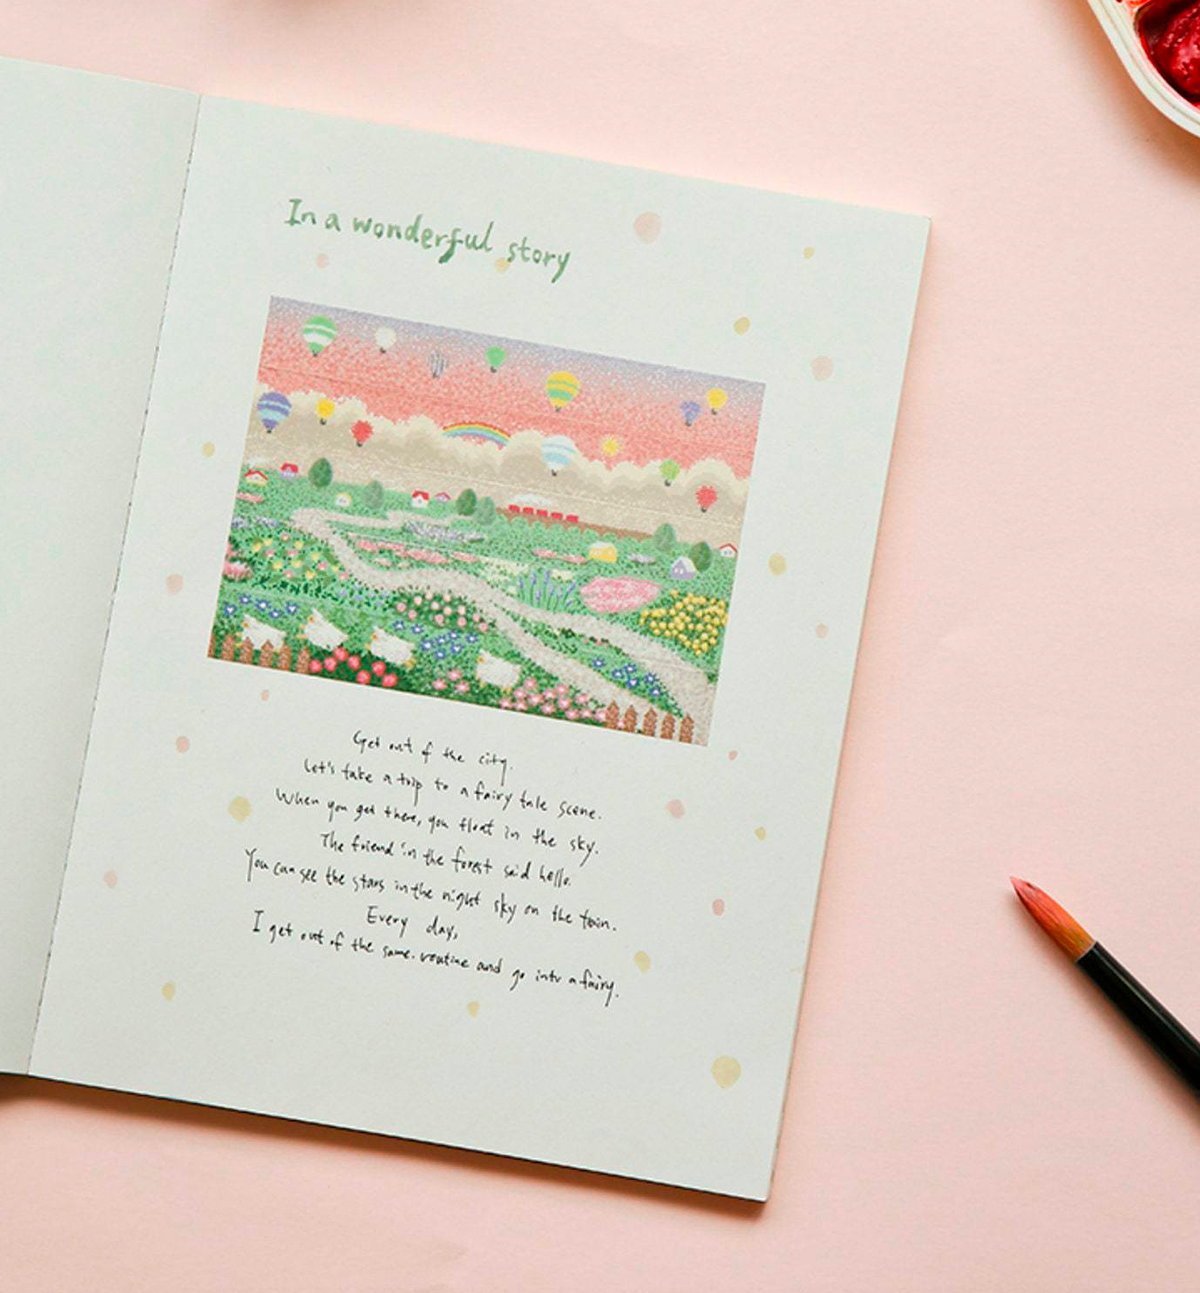 In a wonderful story
Get out of the city.
Let's take a trip to a fairy tale scene.
When you get there, you float in the sky.
The friend in the forest said hello.
You can see the stars in the night sky on the train.
Every day,
I get out of the same routine and go into a fairy.